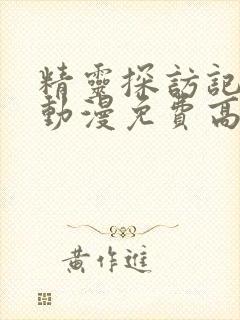 精靈探訪記
動漫免費高
黃作進